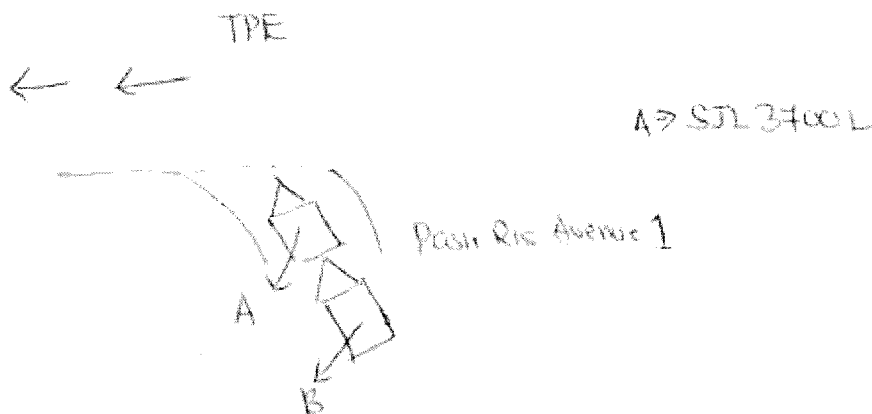 TPE
A⇒ SJL 3700 L
Pasir Ris Avenue 1
A
B